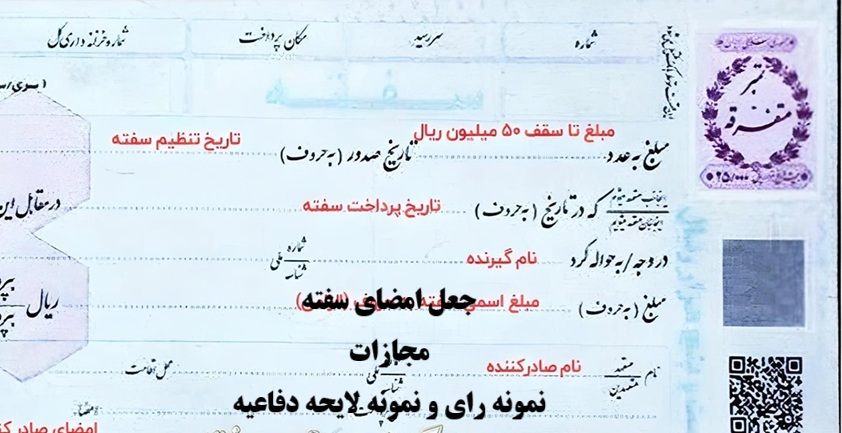 شماره
سررسید
مکان پرداخت
شماره خزانه داری کل
سفته
تمبر
متفرقه
مبلغ تا سقف ۵۰ میلیون ریال
مبلغ به عدد
تاریخ صدور (به حروف)
تاریخ تنظیم سفته
اینجانب متعهد میشوم
اینجانبان متعهد میشویم
که در تاریخ (به حروف)
تاریخ پرداخت سفته
در مقابل این
در وجه / به حواله کرد
نام گیرنده
شماره ملی
شناسه
مبلغ (به حروف)
مبلغ اسمی
ریال
جعل امضای سفته
مجازات
نام متعهد
متعهدین
نام صادرکننده
ملی
شناسه
محل اقامت
نمونه رای و نمونه لایحه دفاعیه
امضا
امضای صادر